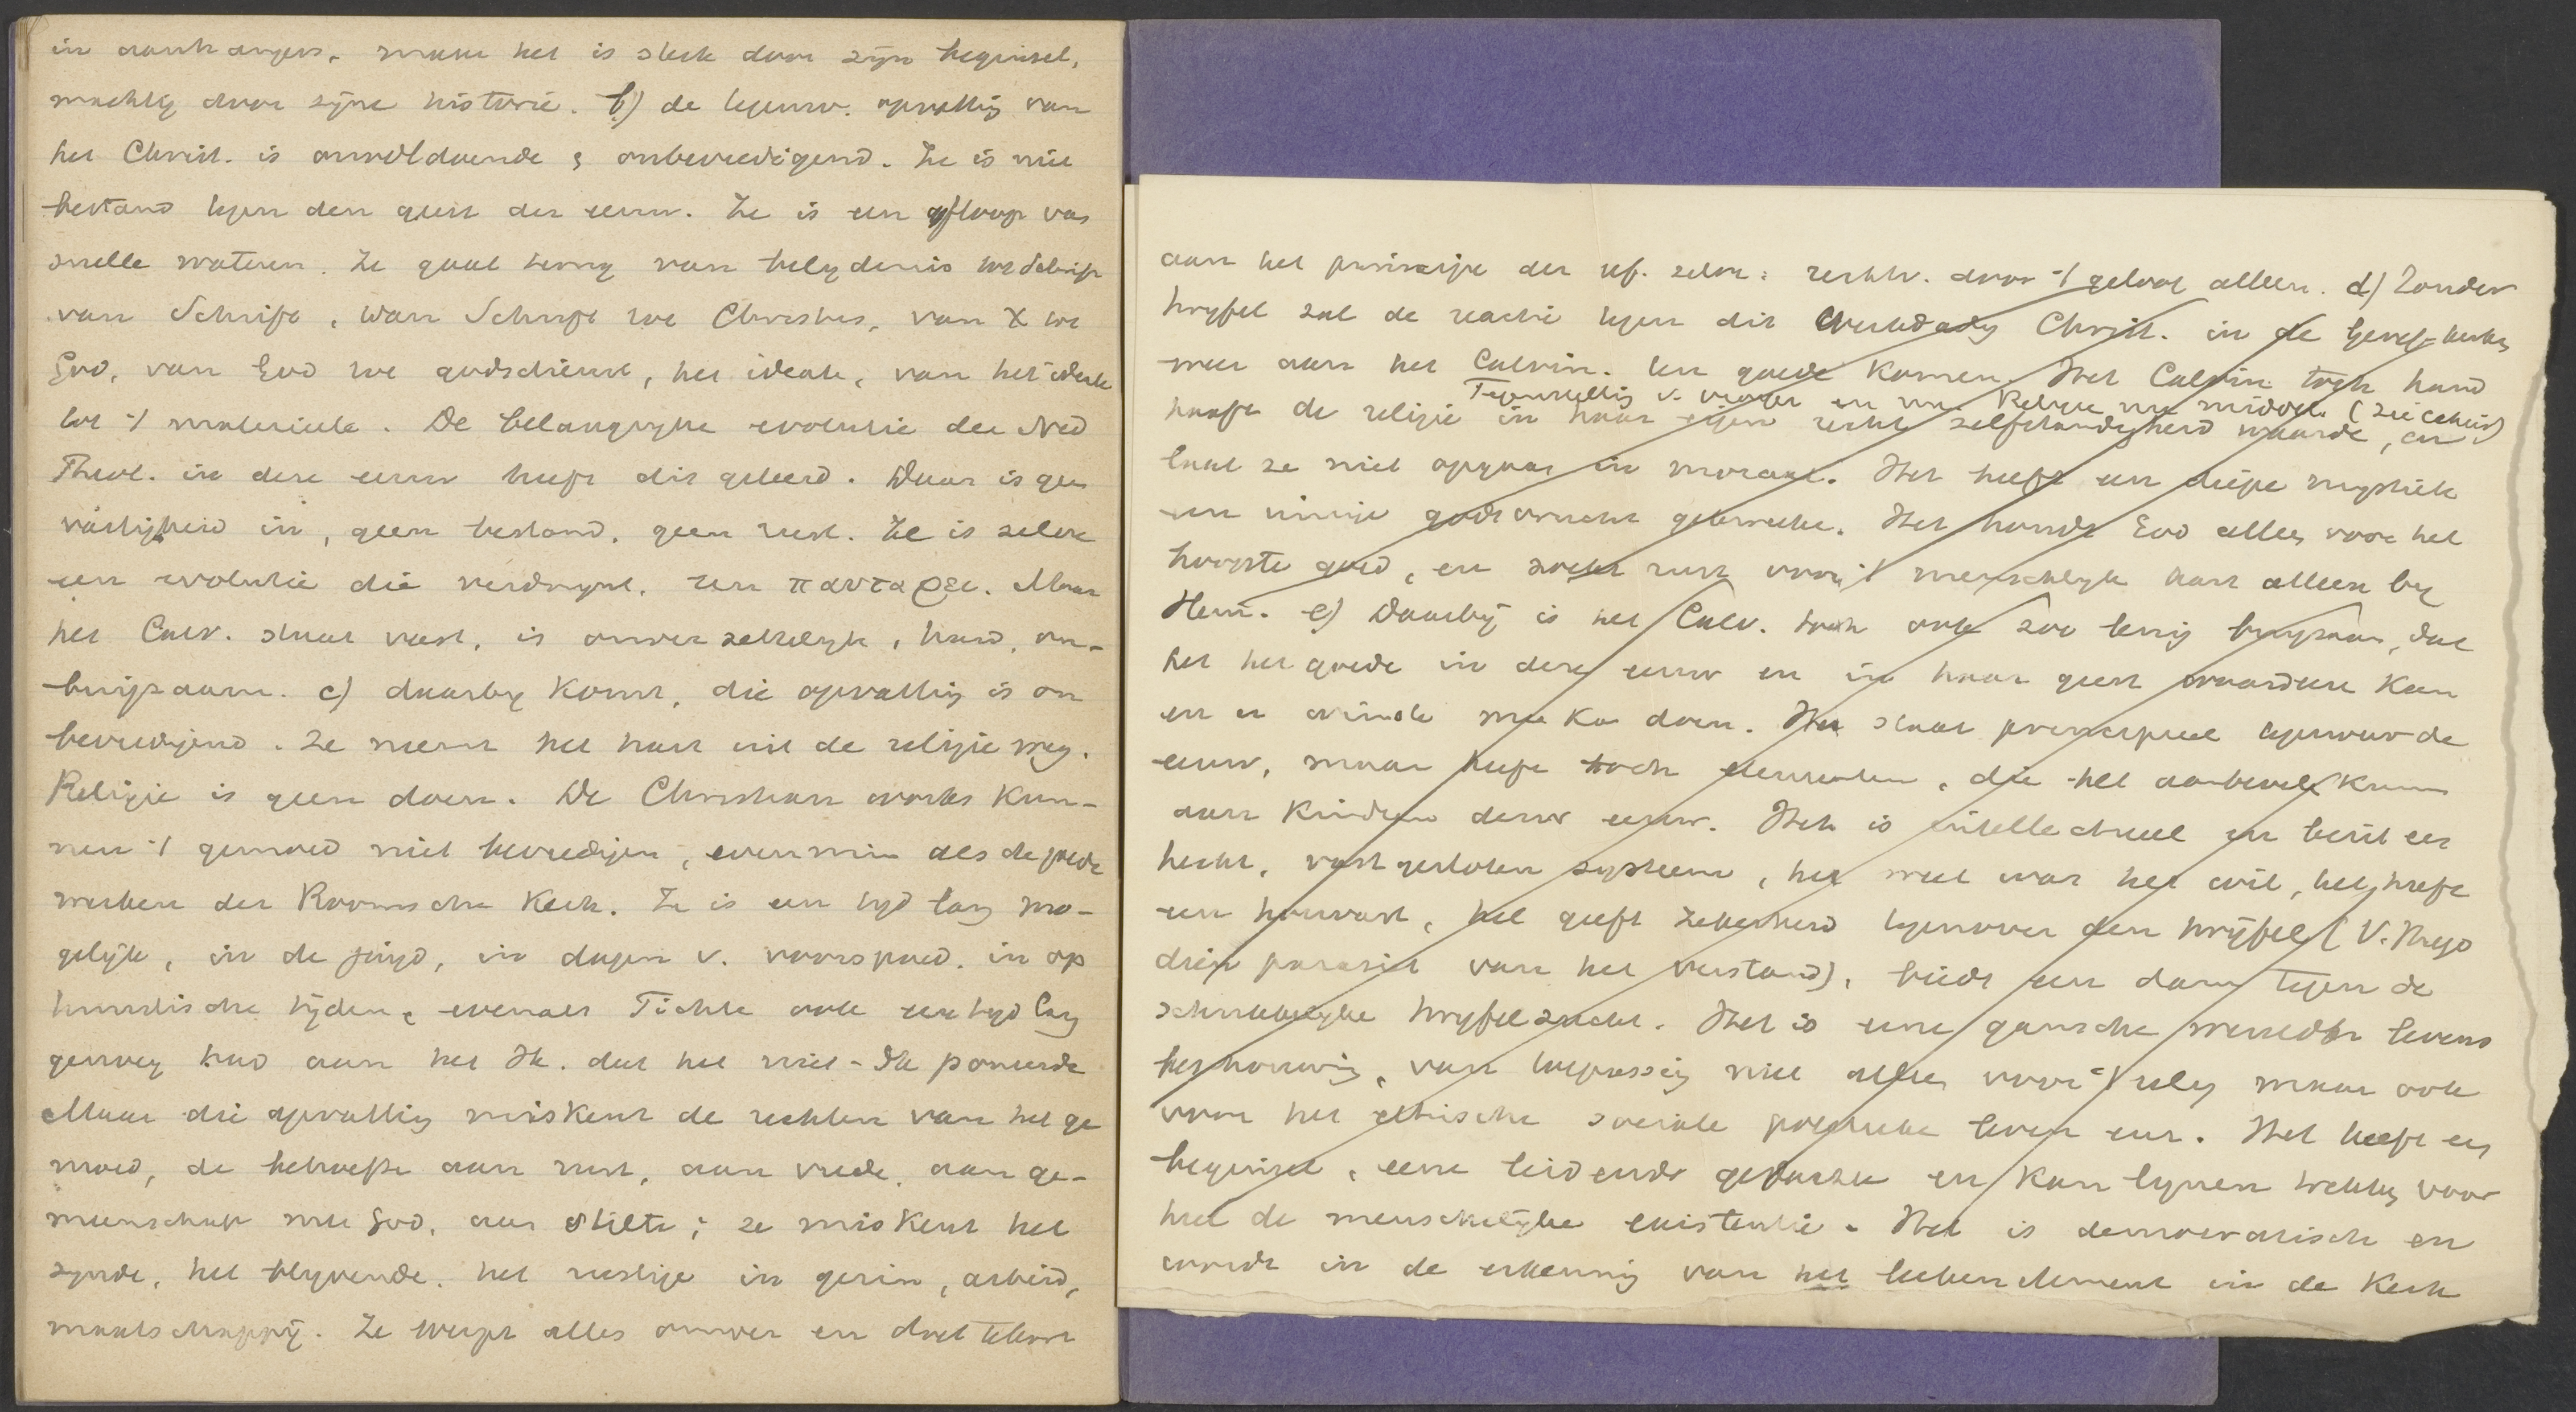 in aanhangers, maar het is sterk door zijn beginsel,
machtig door zijne historie. b) de tegenw. opvattig van
het Christ. is onvoldoende & onbevredigend. Ze is niet
bestand tegen den geest der eeuw. Ze is een afloop van
snelle wateren. Ze gaat terug van belydenis tot Schrift
van Schrift, van Schrift tot Christus, van X tot
God, van God tot godsdienst, het ideale, van het ideale
tot 't materieele. De belangryke evolutie der Ned
Theol. in deze eeuw heeft dit geleerd. Daar is geen
vastigheid in, geen bestand, geen rust. Ze is zelve
een evolutie die verdwynt, een παντα ρει. Maar
het Calv. staat vast, is onverzettelyk, hard, on-
buigzaam. c) daarby komt, die opvattig is on
bevredigend. Ze neemt het hart uit de religie weg.
Religie is geen doen. De Christian works kun-
nen 't gemoed niet bevredigen, evenmin als de goede
werken der Roomsche Kerk. Ze is een tyd lang mo-
gelyk, in de jeugd, in dagen v. voorspoed, in op
timistische tijden, evenals Fichte ook een tyd lang
genoeg had aan het Ik. dat het niet-Ik poneerde
Maar die opvattig miskent de rechten van het ge
moed, de behoefte aan rust, aan vrede, aan ge-
meenschap met God, aan stilte; ze miskent het
zynde, het blyvende, het rustige in gezin, arbeid,
maatschappij. Ze werpt alles omver en doet tekort
aan het principe der ref. zelve: rechtv. door 't geloof alleen. d) Zonder
twyfel zal de reactie tegen dit Christ. in de Geref. kerken
weer aan het Calvin. ten goede komen. Het Calvin. toch hand
Tegenstellig v. en Religie middel (zie
haaft de religie in haar eigen recht zelfstandigheid waarde, en
laat ze niet opgaan in moraal. Het heeft een diepe mystiek
een innige godsvrucht gekweekt. Het houdt God alleen voor het
hoogste goed, en zoekt rust voor 't menschelyk hart alleen by
Hem. e) Daarbij is het Calv. toch ook zoo lenig buigzaam, dat
het het goede in deze eeuw en in haar geest waardeeren kan
en er winste mee kan doen. Het staat principieel tegenover de
eeuw, maar heeft toch elementen, die het aanbevelen kunnen
aan kinderen dezer eeuw. Het is intellectueel en bezit een
hecht, vast gesloten systeem, het weet wat het wil, het heeft
een houvast, het geeft zekerheid tegenover den twijfel (V. Hugo
dien parasiet van het verstand), biedt een dam tegen de
schrikkelyke twyfelzucht. Het is eene gansche wereld en levens
beschouwing, van toepassig niet alleen voor 't relig maar ook
voor het ethische sociale politieke leven enz. Het heeft een
beginsel, eene leidende gedachte en kan lynen trekken voor
heel de menschelijke existentie. Het is democratisch en
wordt in de erkennig van het leekenelement in de Kerk